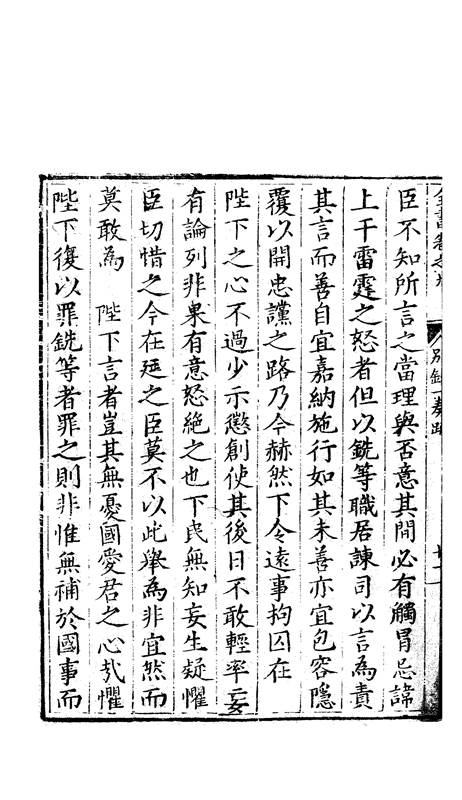 全書卷之九 別錄一奏疏
臣不知所言之當理與否意其間必有觸冒忌諱
上干雷霆之怒者但以銑等職居諫司以言為責
其言而善自宜嘉納施行如其未善亦宜包容隱
覆以開忠讜之路乃今赫然下令遠事拘囚在
陛下之心不過少示懲創使其後日不敢輕率妄
有論列非果有意怒絕之也下民無知妄生疑懼
臣切惜之今在廷之臣莫不以此舉為非宜然而
莫敢為 陛下言者豈其無憂國愛君之心㢤懼
陛下復以罪銑等者罪之則非惟無補於國事而